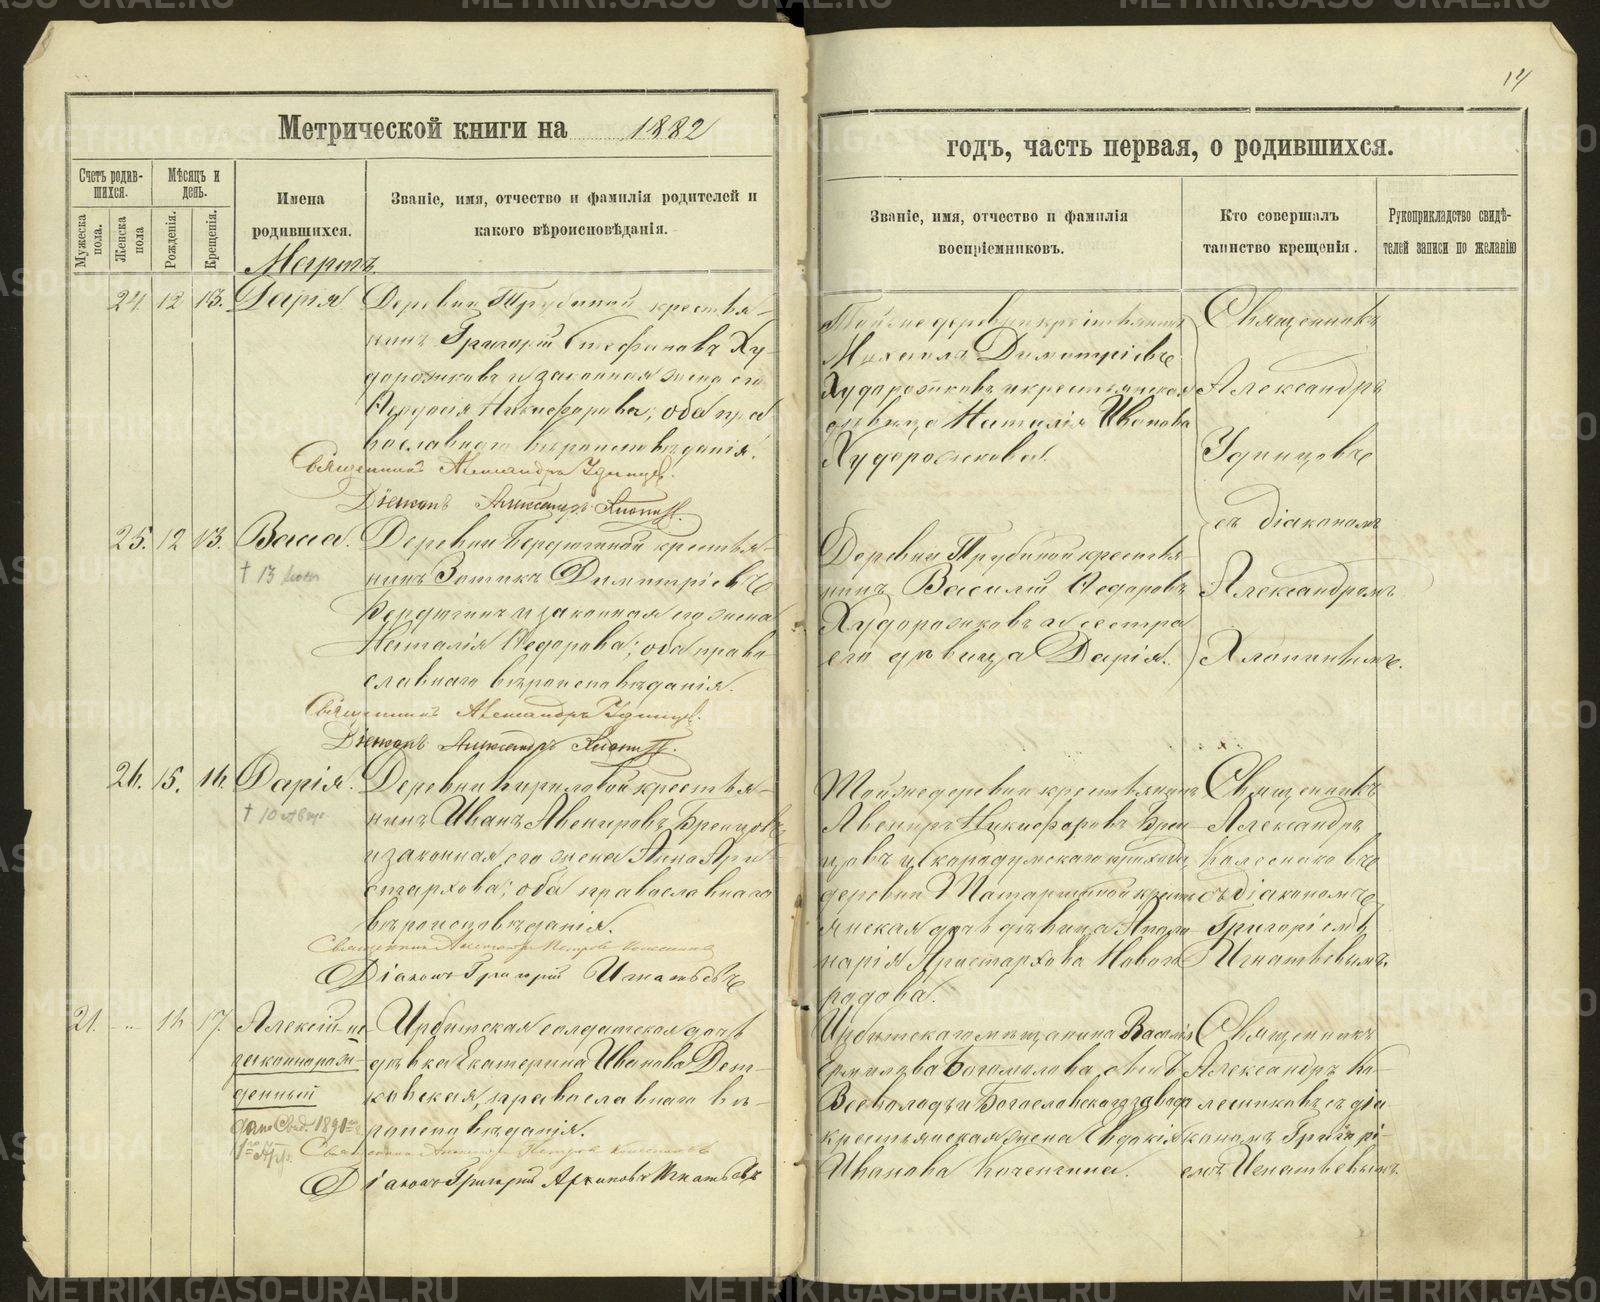 14
Метрической книги на 1882
годъ, часть первая, о родившихся.
Счетъ родив-
шихся.
Мѣсяцъ и
день.
Мужеска
пола.
Женска
пола
Рожденія.
Крещенія.
Имена
родившихся.
Званіе, имя, отчество и фамилія родителей и
какого вѣроисповѣданія.
Званіе, имя, отчество и фамилія
воспріемниковъ.
Кто совершалъ
таинство крещенія.
Рукоприкладство свидѣ-
телей записи по желанію
Мартъ.
24 12 13. Дарія
Деревни Трубиной крестья-
нинъ Григорій Стефановъ Ху-
дорожковъ и законная жена его
Никифорова; оба пра
вославнаго вѣроисповѣданія.
Священникъ Александръ Удинцевъ.
Діаконъ Александръ
Тойже деревни крестьянинъ
Михаилъ Димитріевъ
Худорожковъ и крестьянская
дѣвица Наталія Иванова
Худорожкова.
Священникъ
Александръ
Удинцовъ
съ діакономъ
Александромъ
Хлопинымъ.
25. 12 13. Васса.
† 13
Деревни Бердюгиной крестья-
нинъ Зотикъ Димитріевъ
Бердюгинъ и законная его жена
Наталія Ѳедорова; оба право
славнаго вѣроисповѣданія.
Священникъ Александръ Удинцевъ.
Діаконъ Александръ
Деревни Трубиной крестья-
нинъ Василій Ѳедоровъ
Худорожковъ и сестра
его дѣвица Дарія.
26. 15. 16. Дарія.
† 10
Деревни Кириловой крестья-
нинъ Иванъ Авениров
и законная его жена Анна Ари
стархова; оба православнаго
вѣроисповѣданія.
Священникъ Александръ Петровъ Колесниковъ
Діаконъ Григорій Игнатьевъ
Тойже деревни крестьянинъ
Авениръ Никифоровъ
деревни крест
янская дочь дѣвица Апол
нарія Аристархова Новог
родова.
Священникъ
Александръ
Колесниковъ
съ діакономъ
Григоріемъ
Игнатьевымъ.
21. - " - 16 17. Алексій не
законнорож-
денный
дано Свид. 1891
Ирбитская солдатская дочь
дѣвка Екатерина Иванова Дет-
ковская, православнаго вѣ-
роисповѣданія.
Священникъ Александръ Петровъ Колесниковъ
Діаконъ Григорій Архиповъ Игнатьевъ
Ирбитскаго мѣщанина Василія
Ермилова Богомолова, сынъ
Всеволодъ и Богословскаго завода
крестьянская жена Евдокія
Иванова Коченгина.
Священникъ
Александръ Ко-
лесниковъ съ діа
кономъ Григорі-
емъ Игнатьевымъ.
METRIKI.GASO-URAL.RU